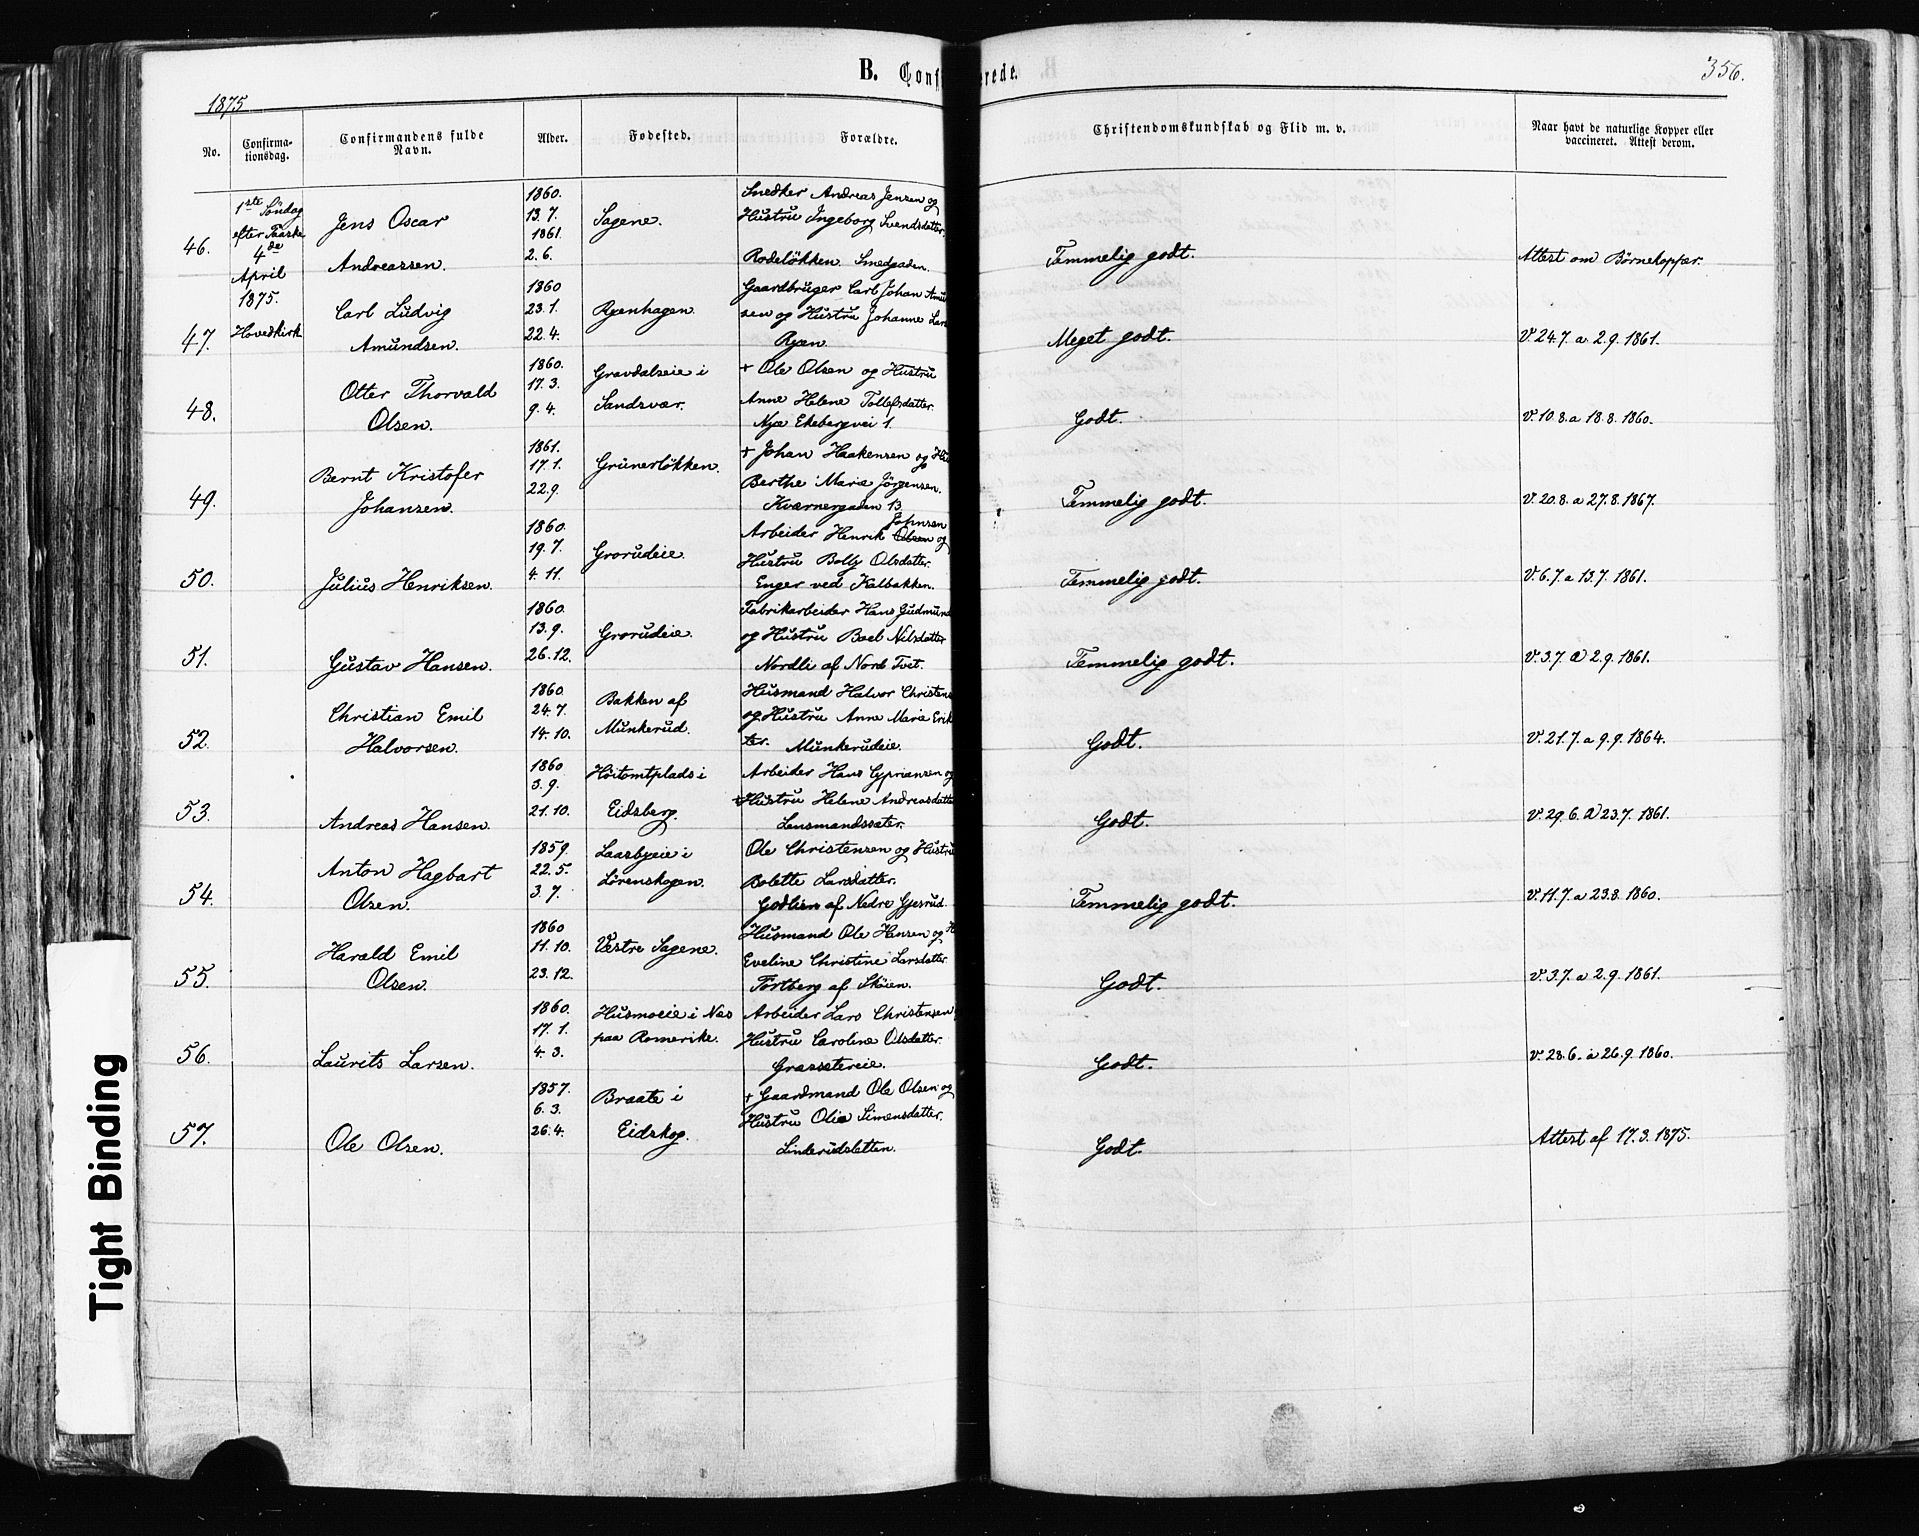 B. Conf erede.
356.
1875
No.
Confirmationsdag.
Confirmandens fulde Navn.
Alder.
Fødested.
Forældre.
Christendomskundskab og Flid m. v.
Naar havt de naturlige Kopper eller vaccineret. Attest derom.
1ste Söndag
efter Paaske
4de
April
1875.
Hovedkirk
46.
Jens Oscar
Andreassen.
1860.
13. 7.
1861.
2. 6.
Sagene.
Snedker Andreas Jensen og
Hustru Ingeborg Svendsdatter.
Rodeløkken Smedgaden.
Temmelig godt.
Attest om Børnekopper.
47.
Carl Ludvig
Amundsen.
1860
23. 1.
22. 4.
Ryenhagen
Gaardbruger Carl Johan Amu
sen og Hustru Johanne Lar
Ryen.
Meget godt.
V. 24.7. a. 2.9. 1861.
48.
Otter Thorvald
Olsen.
1860.
17. 3.
9. 4.
Gravdalseie i
Sandsvær.
+ Ole Olsen og Hustru
Anne Helene Tollefsdatter.
Nye Ekebergvei 1.
Godt.
V. 10.8. a 18.8. 1860.
49.
Bernt Kristofer
Johansen.
1861.
17. 1.
22. 9.
Grünerløkken.
+ Johan Haakensen og Hu
Berthe Marie Jørgensen.
Kværnergaden 13
Temmelig godt.
V. 20.8. a 27.8. 1867.
50.
Julius Henriksen.
1860.
19. 7.
4. 11.
Grorudeie.
Johnsen
Arbeider Henrik Olsen og
Hustru Bolly Olsdatter.
Enger ved Kalbakken.
Temmelig godt.
V. 6.7. a 13.7. 1861.
51.
Gustav Hansen.
1860.
13. 9.
26. 12.
Grorudeie.
Fabrikarbeider Hans Gudmund
og Hustru Boel Nilsdatter
Nordli af Nord Tvet.
Temmelig godt.
V. 3.7. a 2.9. 1861.
52.
Christian Emil
Halvorsen.
1860
24. 7.
14. 10.
Bakken af
Munkerud.
Husmand Halvor Christens
og Hustru Anne Marie Erik
ter. Munkerudeie.
Godt.
V. 21.7. a 9.9. 1864.
53.
Andreas Hansen.
1860
3. 9.
21. 10.
Höitomtplads i
Eidsberg.
Arbeider Hans Cyprianzen og
+ Hustru Helene Andreasdatte
Lensmandssater.
Godt.
V. 29.6. a 23.7. 1861.
54.
Anton Hagbart
Olsen.
1859.
22. 5.
3. 7.
Laasbyeie i
Lørenskogen.
Ole Christensen og Hustru
Bolette Larsdatter.
Godlien af Nedre Gjesrud.
Temmelig godt.
V. 11.7. a 23.8. 1860.
55.
Harald Emil
Olsen.
1860
11. 10.
23. 12.
Vestre Sagene.
Husmand Ole Hansen og H
Eveline Christine Larsdatter
Tortberg af Skøien.
Godt.
V. 3.7. a 2.9. 1861.
56.
Laurits Larsen.
1860.
17. 1.
4. 3.
Husmoeie i Nes
paa Romerike.
Arbeider Lars Christensen
Hustru Caroline Olsdatter.
Græssetereie.
Godt.
V. 28.6. a 26.9. 1860.
57.
Ole Olsen.
1857.
6. 3.
26. 4.
Braate i
Eidskog.
+ Gaardmand Ole Olsen og
Hustru Olia Simensdatter.
Linderudsletten.
Godt.
Attest af 17.3. 1875.
Tight Binding